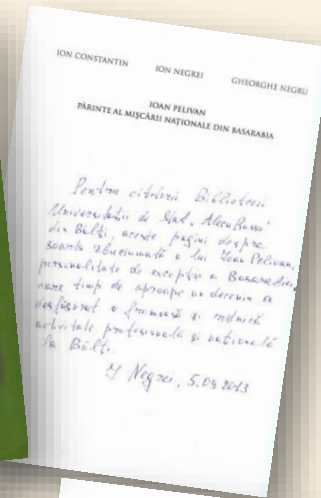 ION CONSTANTIN
ION NEGREI
GHEORGHE NEGRU
IOAN PELIVAN
PĂRINTE AL MIȘCĂRII NAȚIONALE DIN BASARABIA
Pentru cititorii Bibliotecii
Universității de Stat „Alecu Russo”
din Bălți, aceste pagini despre
soarta zbuciumată a lui Ioan Pelivan,
personalitate de excepție a Basarabiei,
care timp de aproape un deceniu a
desfășurat o frumoasă și rodnică
activitate profesională și națională
la Bălți.
I. Negrei, 5.09.2013